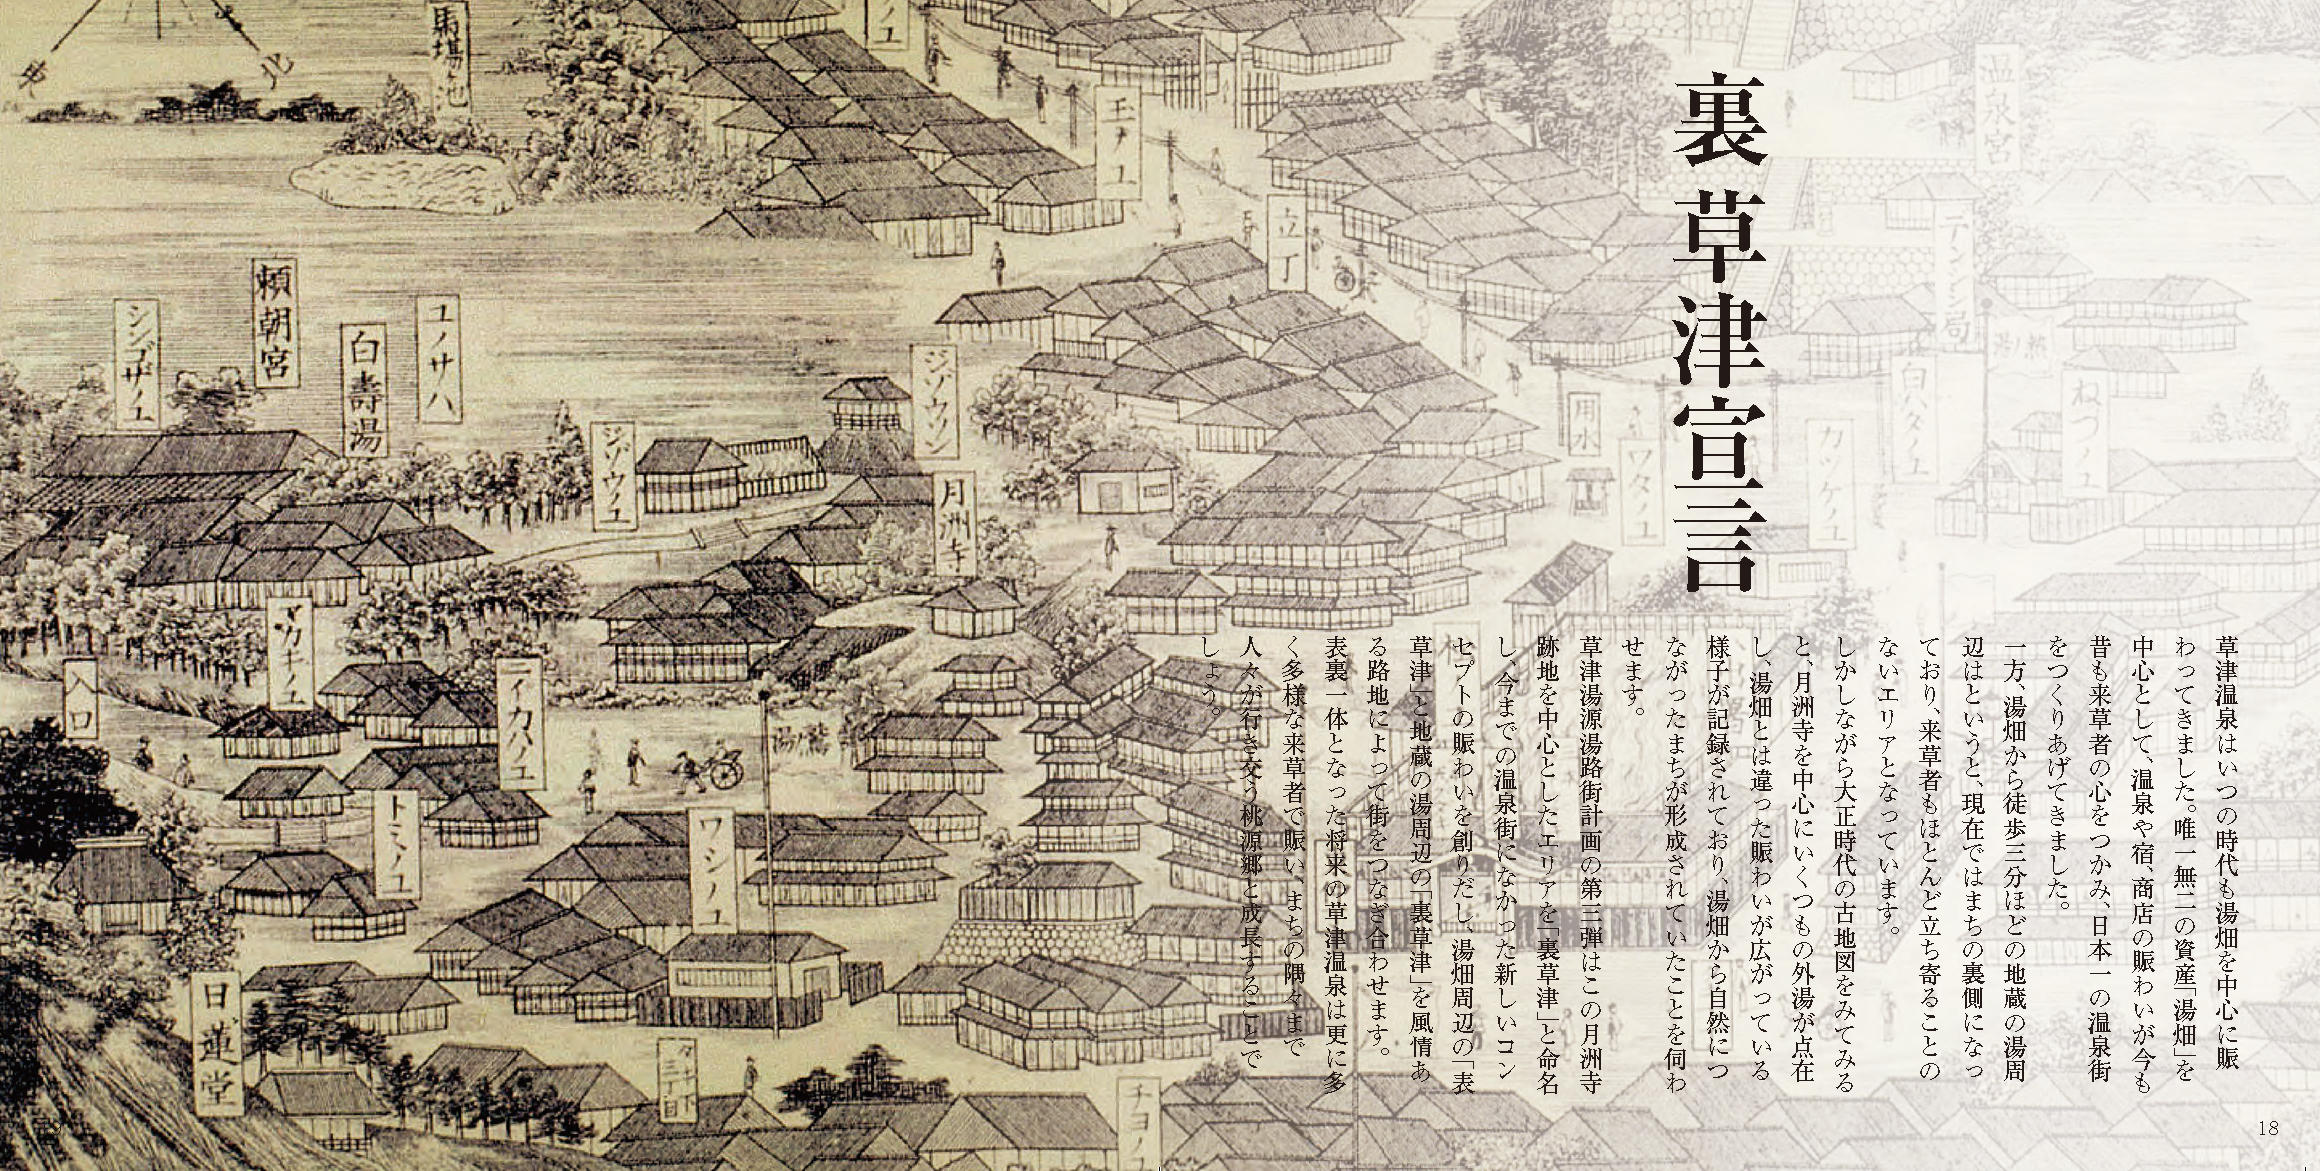 裏草津宣言
草津温泉はいつの時代も湯畑を中心に賑
わってきました。唯一無二の資産「湯畑」を
中心として、温泉や宿、商店の賑わいが今も
昔も来草者の心をつかみ、日本一の温泉街
をつくりあげてきました。
一方、湯畑から徒歩三分ほどの地蔵の湯周
辺はというと、現在ではまちの裏側になっ
ており、来草者もほとんど立ち寄ることの
ないエリアとなっています。
しかしながら大正時代の古地図をみてみる
と、月洲寺を中心にいくつもの外湯が点在
し、湯畑とは違った賑わいが広がっている
様子が記録されており、湯畑から自然につ
ながったまちが形成されていたことを伺わ
せます。
草津湯源湯路街計画の第三弾はこの月洲寺
跡地を中心としたエリアを「裏草津」と命名
し、今までの温泉街になかった新しいコン
セプトの賑わいを創りだし、湯畑周辺の「表
草津」と地蔵の湯周辺の「裏草津」を風情あ
る路地によって街をつなぎ合わせます。
表裏一体となった将来の草津温泉は更に多
く多様な来草者で賑い、まちの隅々まで
人々が行き交う桃源郷と成長することで
しょう。
温泉宮
テンシン局
ねつノユ
白ハタノユ
カツケノユ
ワタノユ
用水
立丁
ジゾウソン
月洲寺
ジゾウノユ
馬場池
北
ユノサハ
白壽湯
頼朝宮
シンザノユ
入口
ニイカハノユ
トミノユ
ワシノユ
日蓮堂
チヨノユ
18